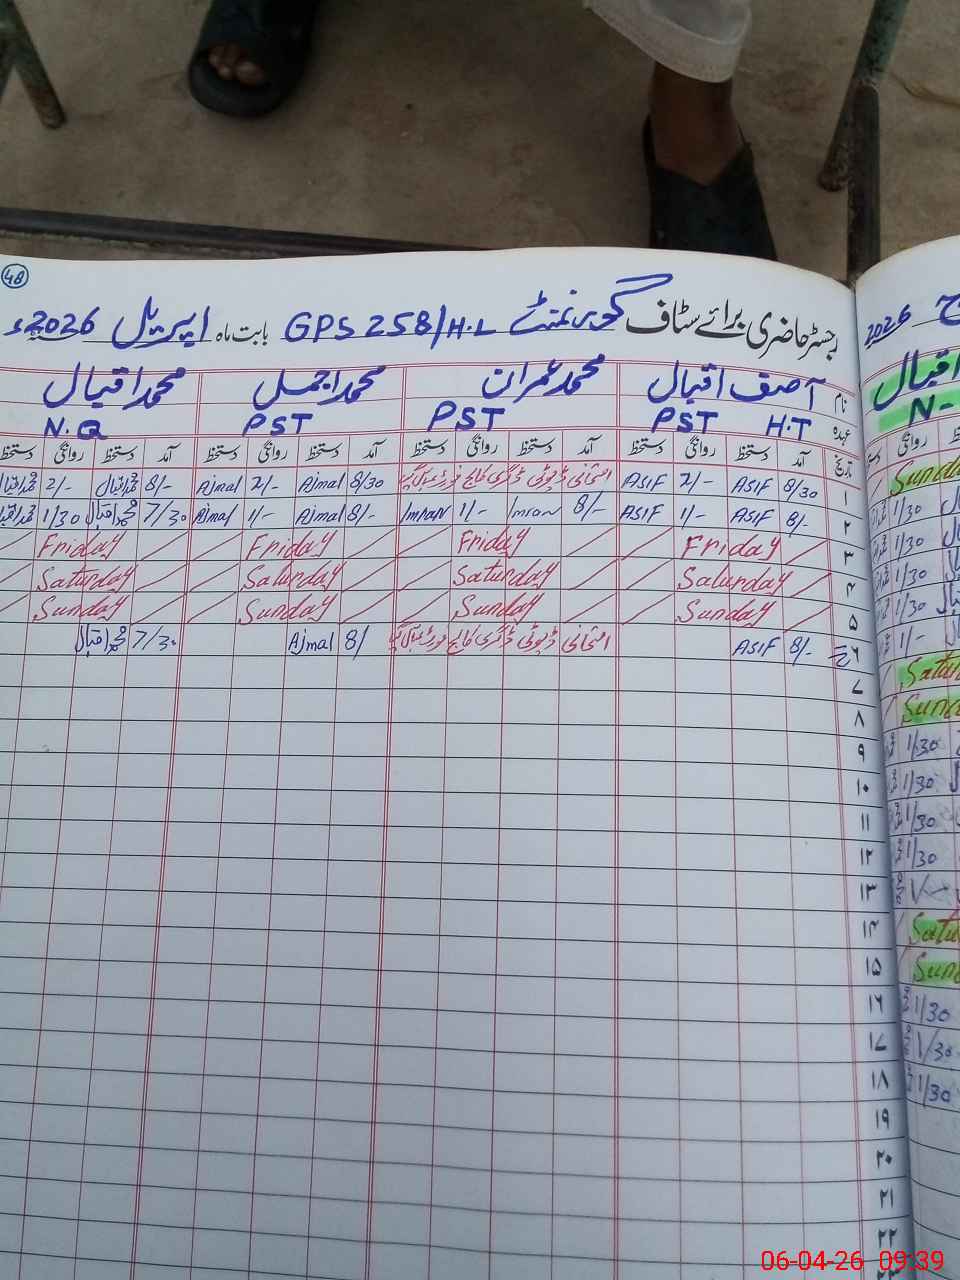 48
رجسٹر حاضری برائے سٹاف گورنمنٹ GPS 258/H.L بابت ماہ اپریل 2026ء
نام آصف اقبال محمد عمران محمد اجمل محمد اقبال
عہدہ H.T PST PST PST N.Q
تاریخ آمد دستخط روانگی دستخط آمد دستخط روانگی دستخط آمد دستخط روانگی دستخط آمد دستخط روانگی دستخط
۱ 8/30 ASIF 2/- ASIF امتحانی ڈیوٹی ڈگری کالج 8/30 Ajmal 2/- Ajmal 8/- محمد اقبال 2/- محمد اقبال
۲ 8/- ASIF 1/- ASIF 8/- Imran 1/- Imran 8/- Ajmal 1/- Ajmal 7/30 محمد اقبال 1/30 محمد اقبال
۳ Friday Friday Friday Friday
۴ Saturday Saturday Saturday Saturday
۵ Sunday Sunday Sunday Sunday
۶ 8/- ASIF امتحانی ڈیوٹی ڈگری کالج 8/ Ajmal 7/30 محمد اقبال
۷
۸
۹
۱۰
۱۱
۱۲
۱۳
۱۴
۱۵
۱۶
۱۷
۱۸
۱۹
۲۰
۲۱
۲۲
۲۳
2026
اقبال
N-
روانگی
Sunda
1/30
1/30
1/30
1/30
1/-
Satur
Sun
1/30
1/30
1/30
1/30
Satu
Sun
1/30
1/30
1/30
06-04-26 09:39